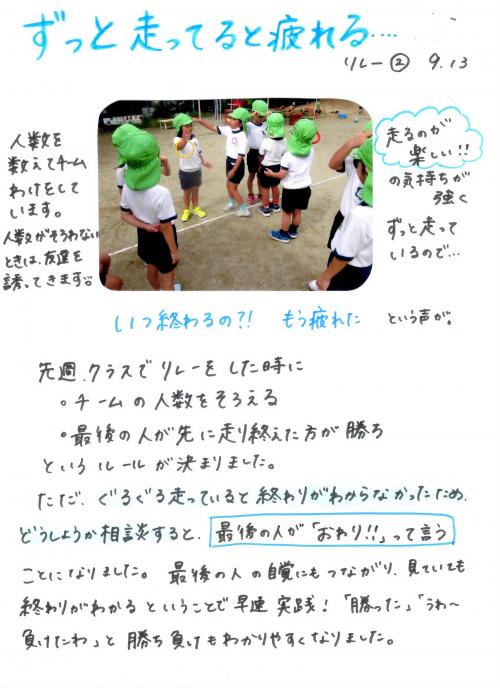 ずっと走ってると疲れる....
リレー② 9.13
人数を
数えてチーム
わけをして
います。
人数がそろわない
ときは、友達を
誘ってきます。
走るのが
楽しい!!
の気持ちが
強く
ずっと走って
いるので…
いつ終わるの?! もう疲れた という声が。
先週、クラスでリレーをした時に
・チームの人数をそろえる
・最後の人が先に走り終えた方が勝ち
というルールが決まりました。
ただ、ぐるぐる走っていると終わりがわからなかったため、
どうしようか相談すると、最後の人が「おわり!!」って言う
ことになりました。最後の人の自覚にもつながり、見ていても
終わりがわかるということで早速実践!「勝った」「うわ〜
負けたわ」と勝ち負けもわかりやすくなりました。